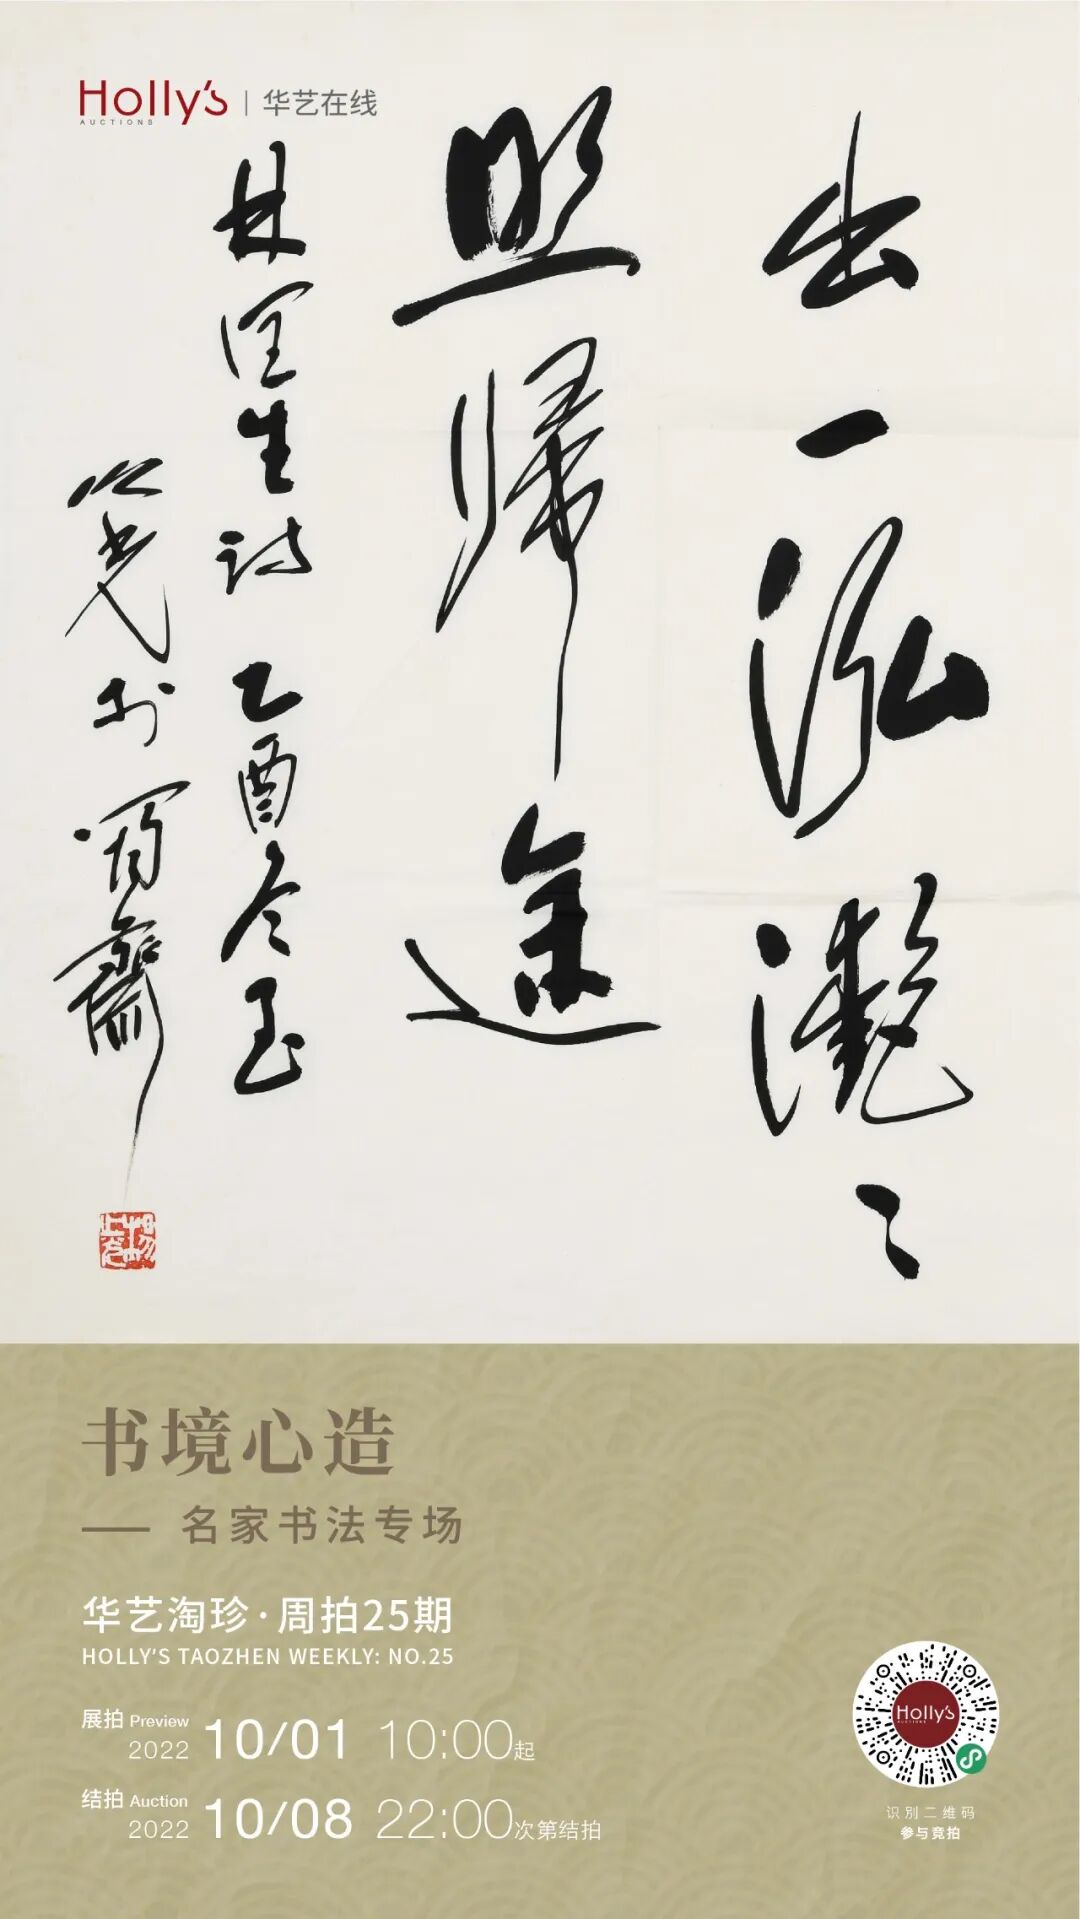 Holly's
AUCTIONS
华艺在线
出一泓滟〻
照歸途
林宧生诗 乙酉冬玉
之光於眉齋
书境心造
—— 名家书法专场
华艺淘珍·周拍25期
HOLLY'S TAOZHEN WEEKLY: NO.25
展拍 Preview 2022 10/01 10:00起
结拍 Auction 2022 10/08 22:00次第结拍
Holly's
AUCTIONS
识别二维码
参与竞拍